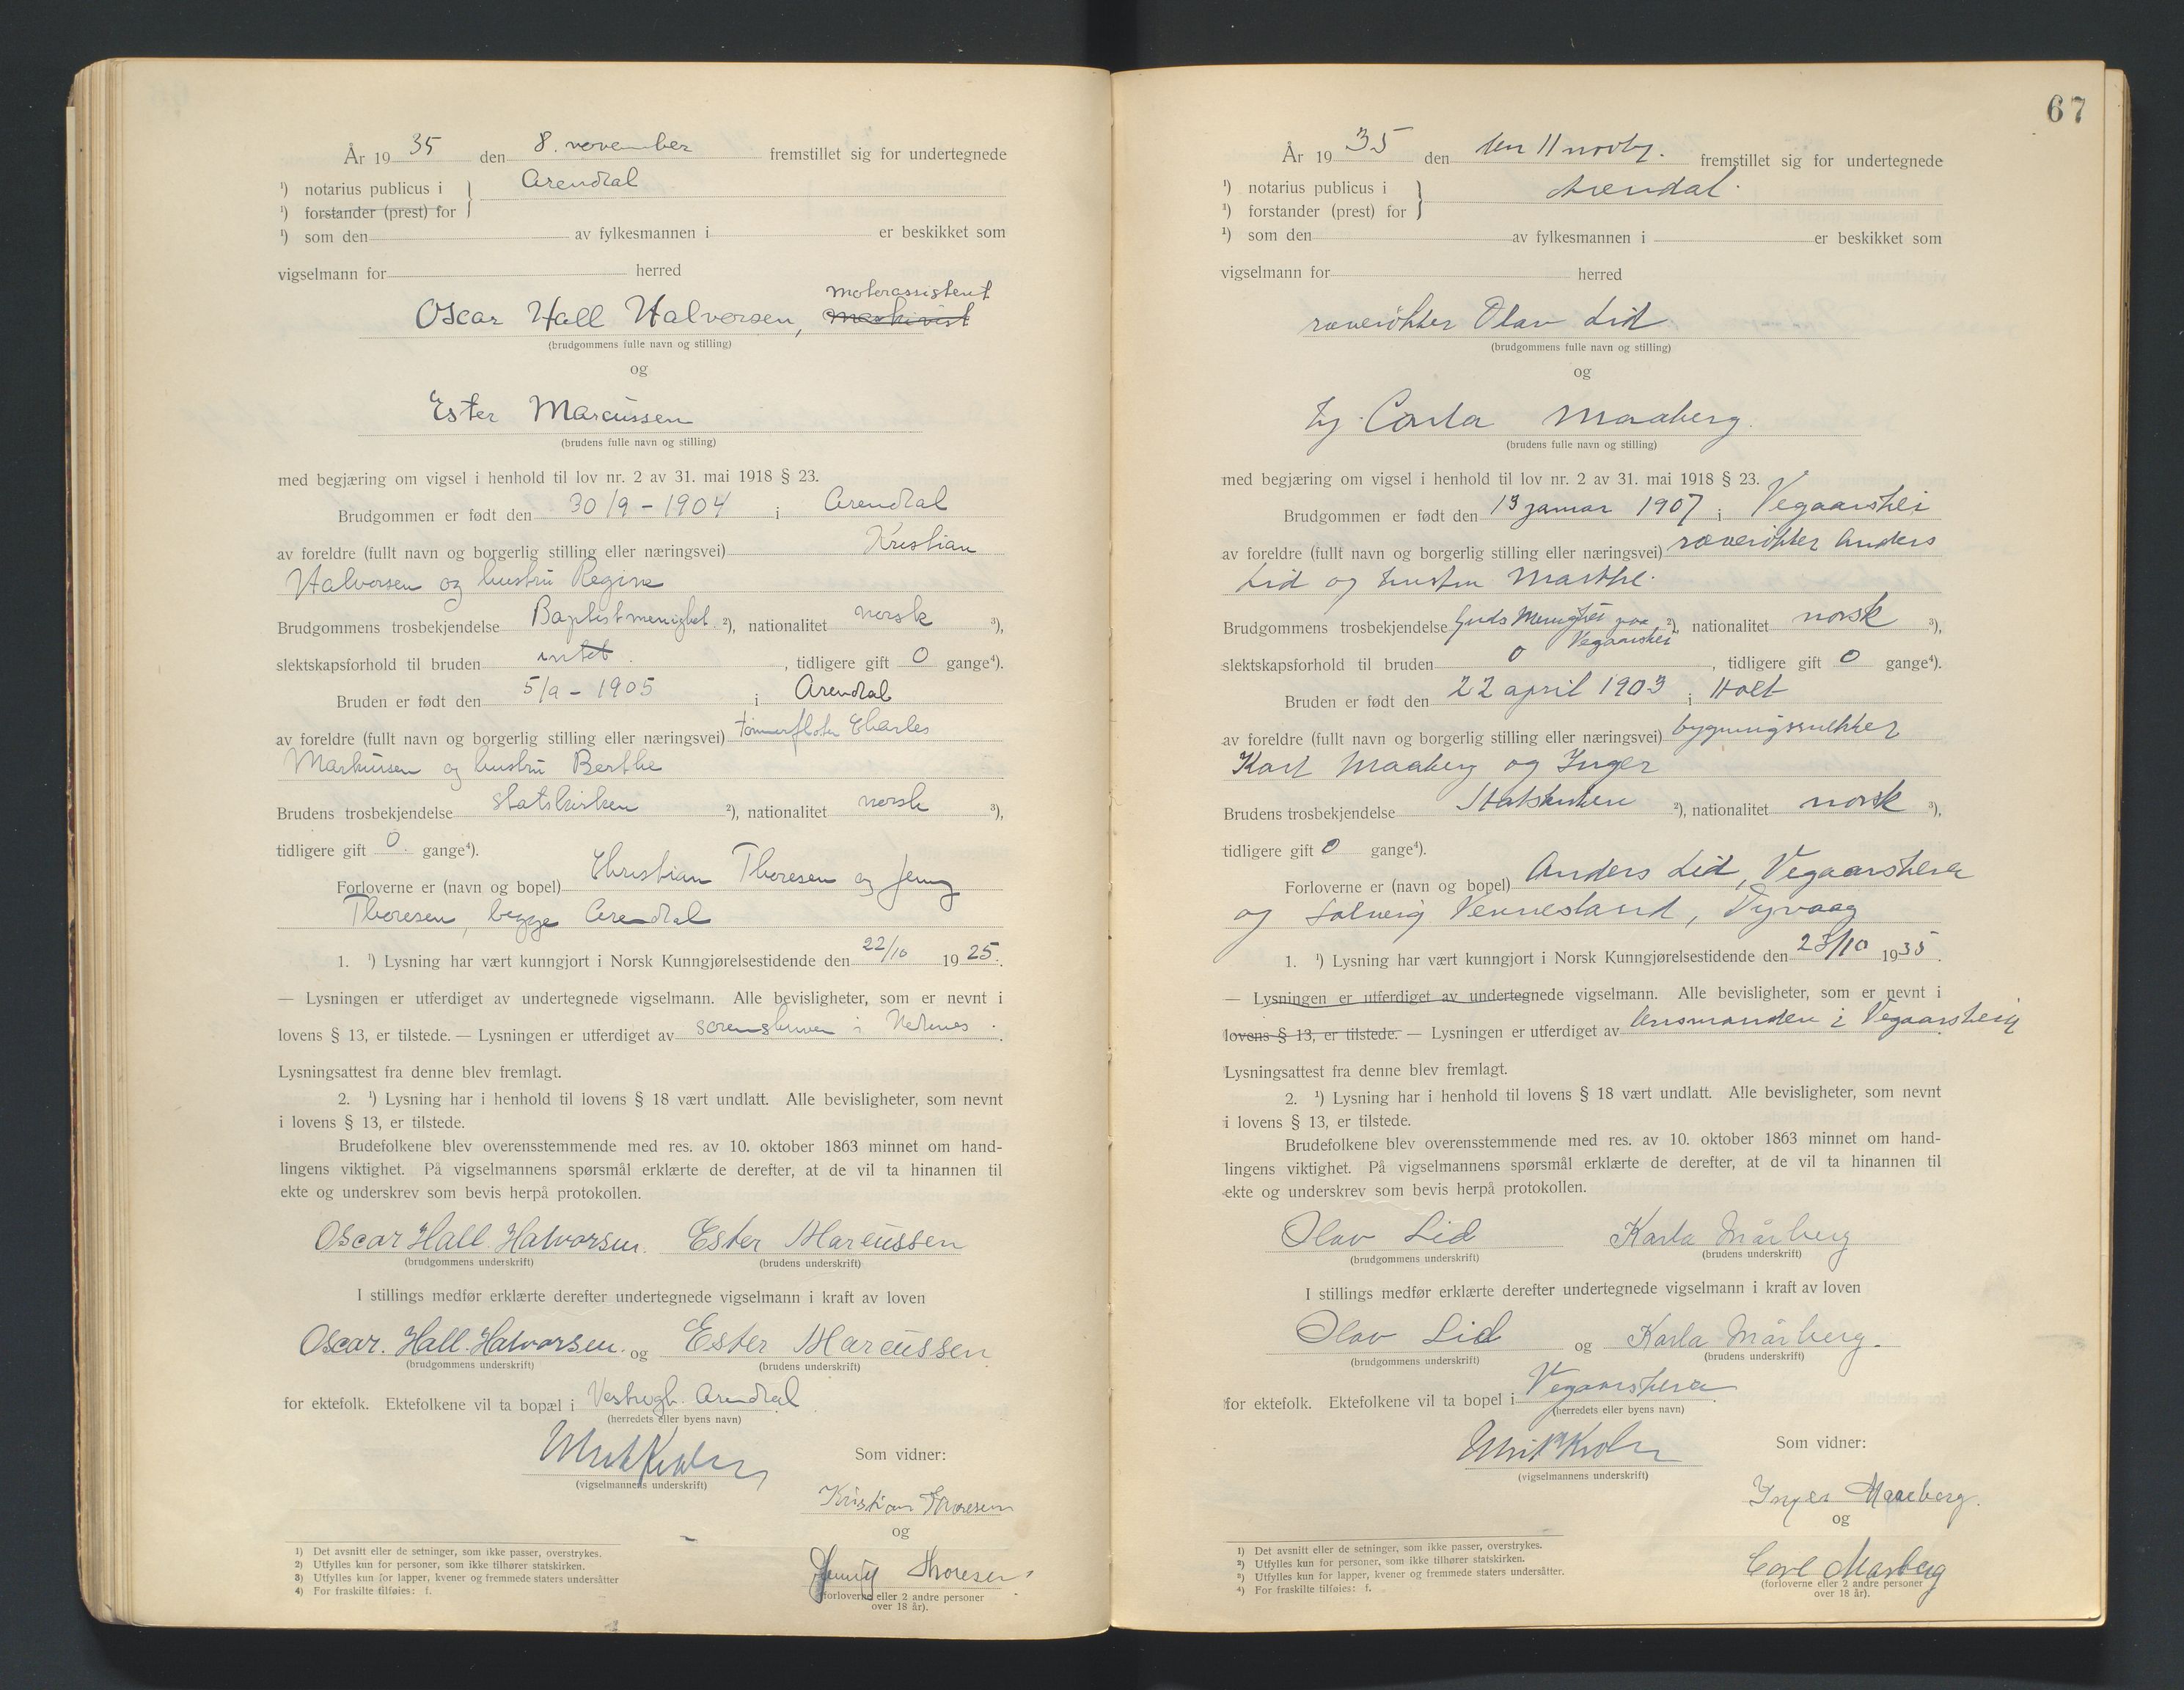 År 19 35 den 8. november fremstillet sig for undertegnede
¹) notarius publicus i } Arendal
¹) forstander (prest) for
¹) som den av fylkesmannen i er beskikket som
vigselmann for herred
motorassistent
Oscar Hall Halvorsen, maskinist
(brudgommens fulle navn og stilling)
og
Ester Marcussen
(brudens fulle navn og stilling)
med begjæring om vigsel i henhold til lov nr. 2 av 31. mai 1918 § 23.
Brudgommen er født den 30/9 - 1904 i Arendal
av foreldre (fullt navn og borgerlig stilling eller næringsvei) Kristian
Halvorsen og hustru Regine
Brudgommens trosbekjendelse Baptistmenighet ²), nationalitet norsk ³),
slektskapsforhold til bruden intet. , tidligere gift 0 gange⁴).
Bruden er født den 5/9 - 1905 i Arendal
av foreldre (fullt navn og borgerlig stilling eller næringsvei) tømmerfløter Charles
Markussen og hustru Berthe
Brudens trosbekjendelse statskirken ²), nationalitet norsk ³),
tidligere gift 0. gange⁴).
Forloverne er (navn og bopel) Christian Thoresen og Jenny
Thoresen, begge Arendal
1. ¹) Lysning har vært kunngjort i Norsk Kunngjørelsestidende den 22/10 19 25.
— Lysningen er utferdiget av undertegnede vigselmann. Alle bevisligheter, som er nevnt i
lovens § 13, er tilstede. — Lysningen er utferdiget av sorenskriveren i Nedenes.
Lysningsattest fra denne blev fremlagt.
2. ¹) Lysning har i henhold til lovens § 18 vært undlatt. Alle bevisligheter, som nevnt
i lovens § 13, er tilstede.
Brudefolkene blev overensstemmende med res. av 10. oktober 1863 minnet om hand-
lingens viktighet. På vigselmannens spørsmål erklærte de derefter, at de vil ta hinannen til
ekte og underskrev som bevis herpå protokollen.
Oscar Hall. Halvorsen. Ester Marcussen
(brudgommens underskrift) (brudens underskrift)
I stillings medfør erklærte derefter undertegnede vigselmann i kraft av loven
Oscar. Hall. Halvorsen. og Ester Marcussen
(brudgommens underskrift) (brudens underskrift)
for ektefolk. Ektefolkene vil ta bopæl i Arendal
(herredets eller byens navn)
(vigselmannens underskrift)
Som vidner:
Kristian Thoresen
og
Jenny Thoresen
(forloverne eller 2 andre personer
over 18 år).
1) Det avsnitt eller de setninger, som ikke passer, overstrykes.
2) Utfylles kun for personer, som ikke tilhører statskirken.
3) Utfylles kun for lapper, kvener og fremmede staters undersåtter
4) For fraskilte tilføies: f.
67
År 19 35 den den 11 novbr. fremstillet sig for undertegnede
¹) notarius publicus i } Arendal.
¹) forstander (prest) for
¹) som den av fylkesmannen i er beskikket som
vigselmann for herred
røverøkter Olav Lid
(brudgommens fulle navn og stilling)
og
Carla Maaberg.
(brudens fulle navn og stilling)
med begjæring om vigsel i henhold til lov nr. 2 av 31. mai 1918 § 23.
Brudgommen er født den 13 januar 1907 i Vegaarshei
av foreldre (fullt navn og borgerlig stilling eller næringsvei) røverøkter Anders
Lid og hustru Marthe.
Brudgommens trosbekjendelse Guds Menighet paa ²), nationalitet norsk ³),
Vegaarshei
slektskapsforhold til bruden 0 , tidligere gift 0 gange⁴).
Bruden er født den 22 april 1903 i Holt
av foreldre (fullt navn og borgerlig stilling eller næringsvei) bygningssnekker
Karl Maaberg og Inger
Brudens trosbekjendelse Statskirken ²), nationalitet norsk ³),
tidligere gift 0 gange⁴).
Forloverne er (navn og bopel) Anders Lid, Vegaarsheia
og Solveig Vennesland, Dyvaag
1. ¹) Lysning har vært kunngjort i Norsk Kunngjørelsestidende den 23/10 1935.
— Lysningen er utferdiget av undertegnede vigselmann. Alle bevisligheter, som er nevnt i
lovens § 13, er tilstede. — Lysningen er utferdiget av lensmanden i Vegaarshei
Lysningsattest fra denne blev fremlagt.
2. ¹) Lysning har i henhold til lovens § 18 vært undlatt. Alle bevisligheter, som nevnt
i lovens § 13, er tilstede.
Brudefolkene blev overensstemmende med res. av 10. oktober 1863 minnet om hand-
lingens viktighet. På vigselmannens spørsmål erklærte de derefter, at de vil ta hinannen til
ekte og underskrev som bevis herpå protokollen.
Olav Lid Karla Mårberg
(brudgommens underskrift) (brudens underskrift)
I stillings medfør erklærte derefter undertegnede vigselmann i kraft av loven
Olav Lid og Karla Mårberg.
(brudgommens underskrift) (brudens underskrift)
for ektefolk. Ektefolkene vil ta bopel i Vegaarsheia
(herredets eller byens navn)
(vigselmannens underskrift)
Som vidner:
Inger Maaberg.
og
Carl Maaberg
(forloverne eller 2 andre personer
over 18 år).
1) Det avsnitt eller de setninger, som ikke passer, overstrykes.
2) Utfylles kun for personer, som ikke tilhører statskirken.
3) Utfylles kun for lapper, kvener og fremmede staters undersåtter.
4) For fraskilte tilføies: f.